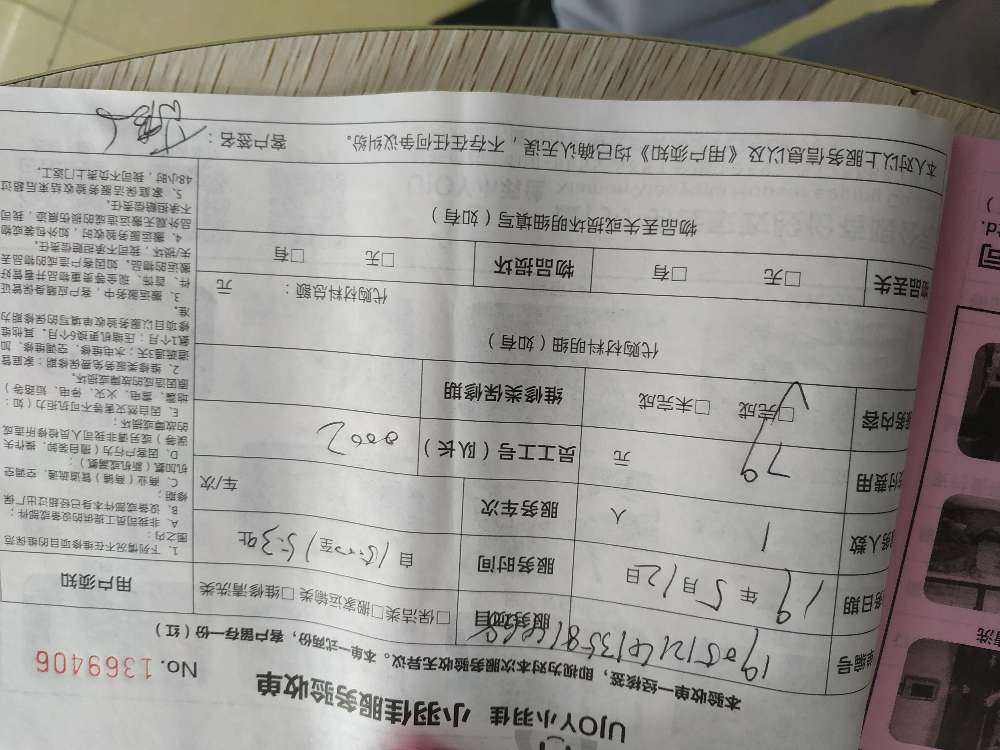 UJOY小羽佳 小羽佳服务验收单
No. 1369406
本验收单一经核签，即视为对本次服务验收无异议。本单一式两份，客户留存一份（红）
单编号
服务项目 □保洁类□搬家运输类□维修清洗类
务日期 19 年 5 月 12 日
服务时间 自 15:00至15:39止
务人数 1 人
服务车次 车/次
付费用 79 元
员工工号（队长） 0002
服务内容 □完成 □未完成
维修类保修期
代购材料明细（如有）
代购材料总额： 元
物品丢失 □无 □有
物品损坏 □无 □有
物品丢失或损坏明细填写（如有）
本人对以上服务信息以及《用户须知》均已确认无误，不存在任何争议纠纷。 客户签名：
用户须知
1. 下列情况不在维修项目的维保范
围之内：
A. 非我司员工提供的设备或部件；
B. 设备或部件本身已经超过出厂保
修期；
C. 商业（商铺）管道疏通、空调空
机加氟（新机或漏氟）；
D. 因客户行为（擅自装卸、操作失
误等）或另请非我司人员检修所造成
的故障或损坏；
E. 因自然灾害等不可抗拒力（如：
地震、雷电、火灾、停电、短路等）
原因造成的故障或损坏。
2. 维修类服务免费保修期：家庭管
道疏通3天；水电维修、空调维修、加
氟1个月；压缩机更换6个月。其他维
修项目以服务验收单填写的保修期为
准。
3. 搬运服务中，客户应随身保管证
件、首饰、现金等贵重物品并看管好
搬运的物品。如因客户造成的物品丢
失/损坏，我司不承担赔偿责任。
4. 搬运服务验收时，如外包装或物
品外观无搬运造成的损伤痕迹，我司
不承担赔偿责任。
5. 家庭保洁服务验收结束后超过
48小时，我司不负责上门返工。
清洗
司
td.